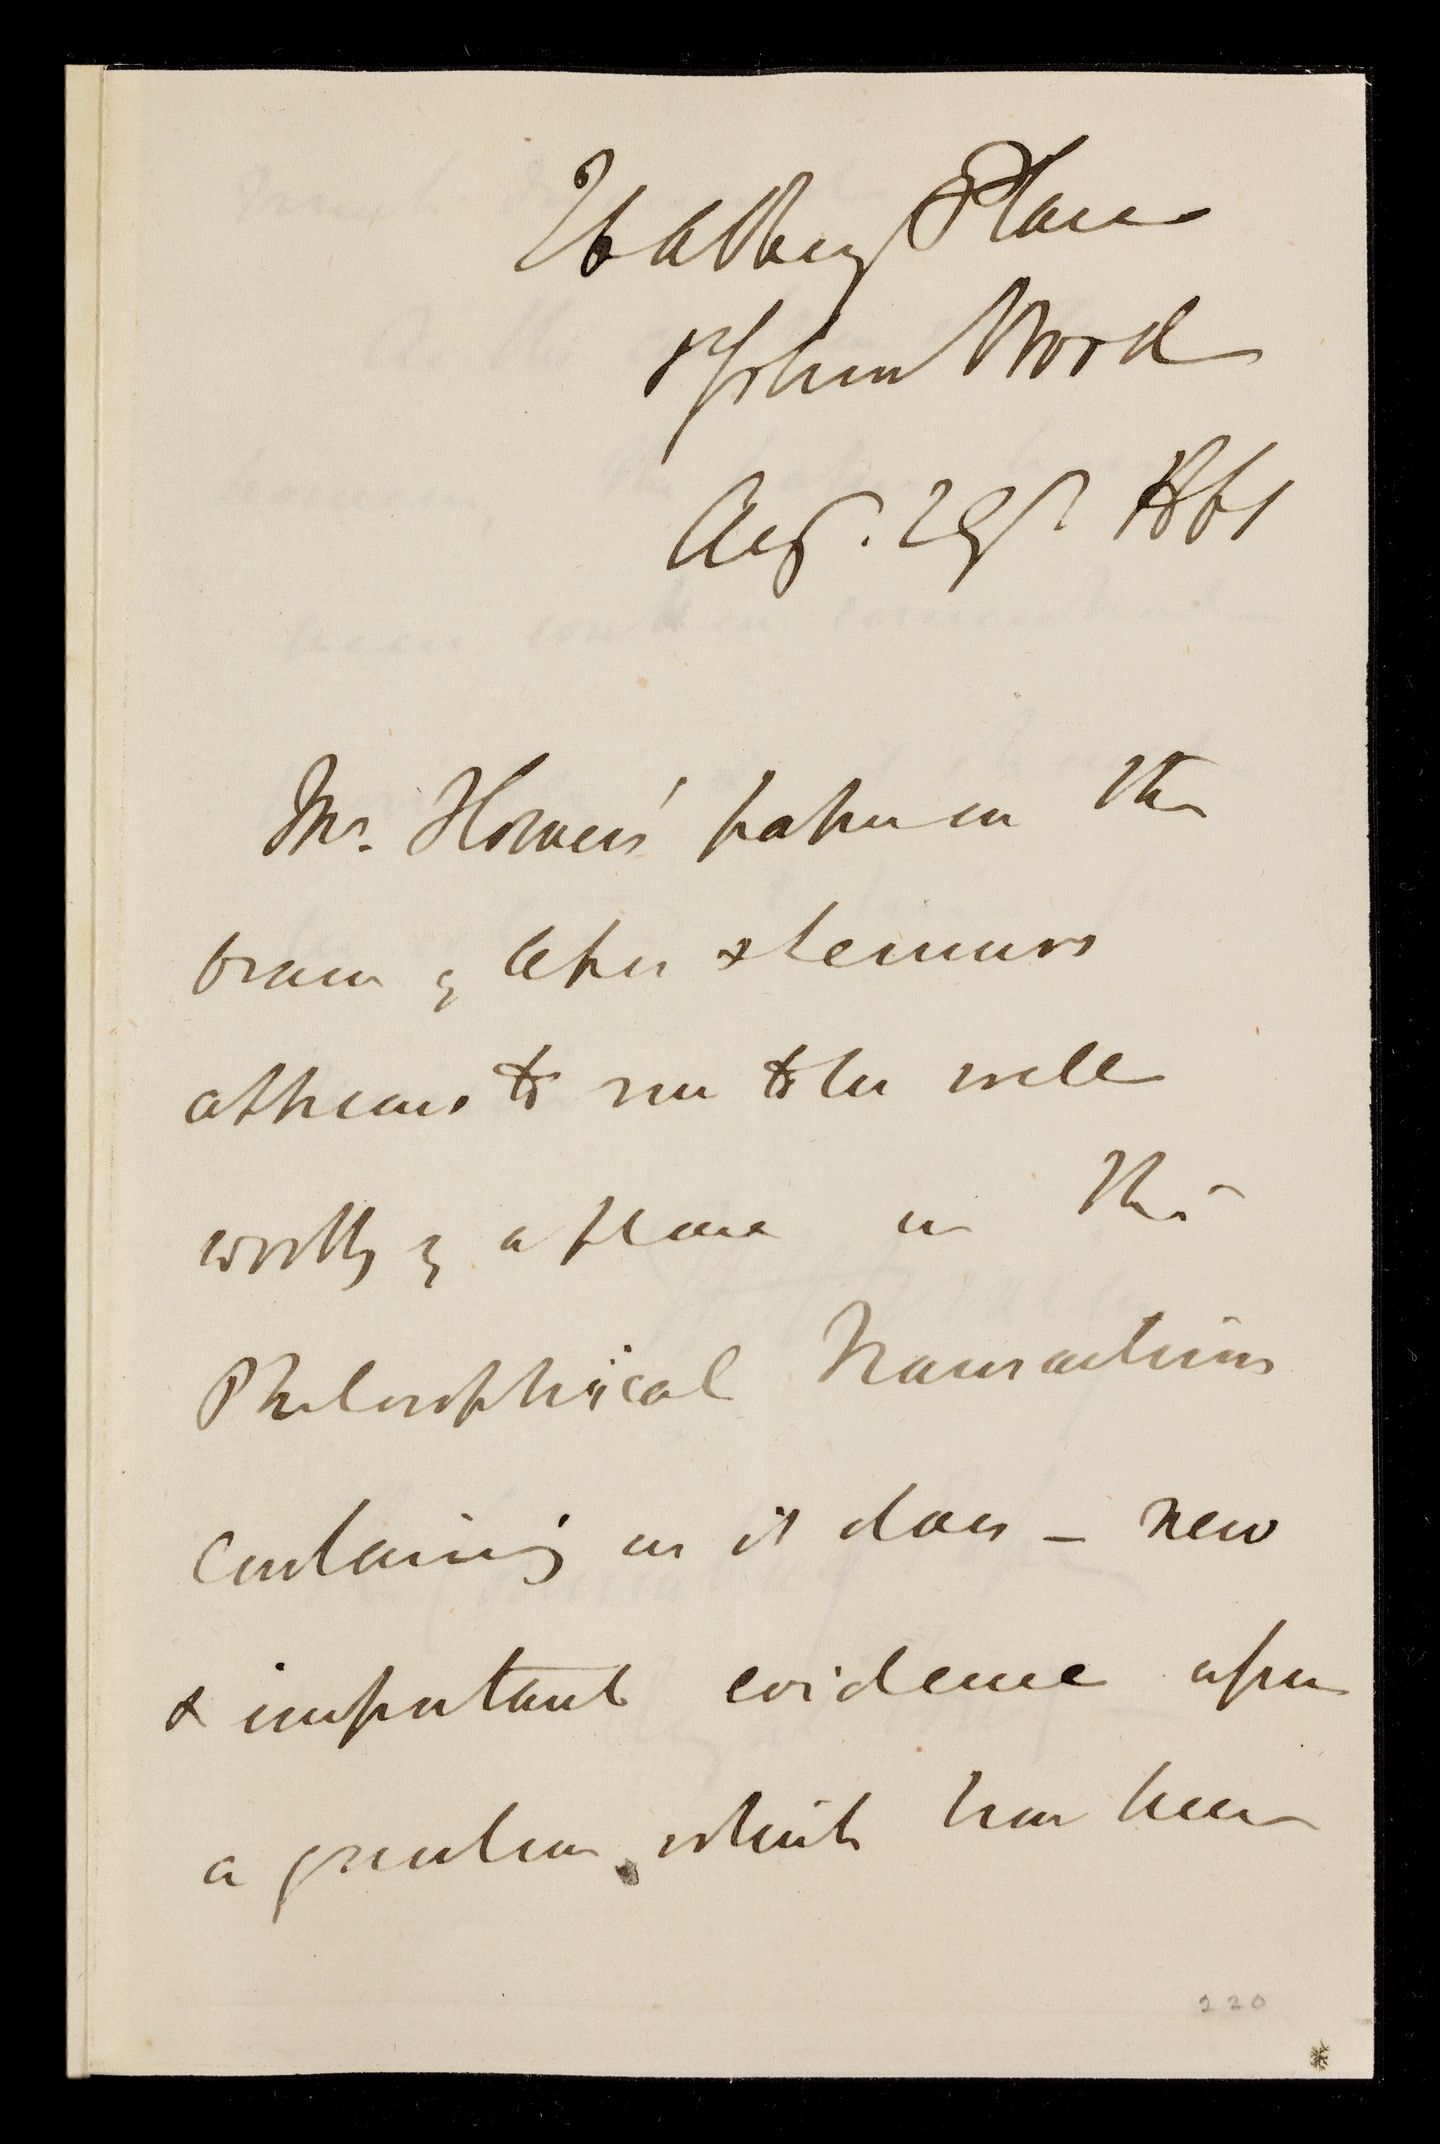 26 Abbey Place
St John's Wood
Aug. 29th 1861
Mr. Flower's paper on the
brain of Apes & Lemurs
appears to me to be well
worthy of a place in the
Philosophical Transactions
containing as it does – new
& important evidence upon
a question which has been
220